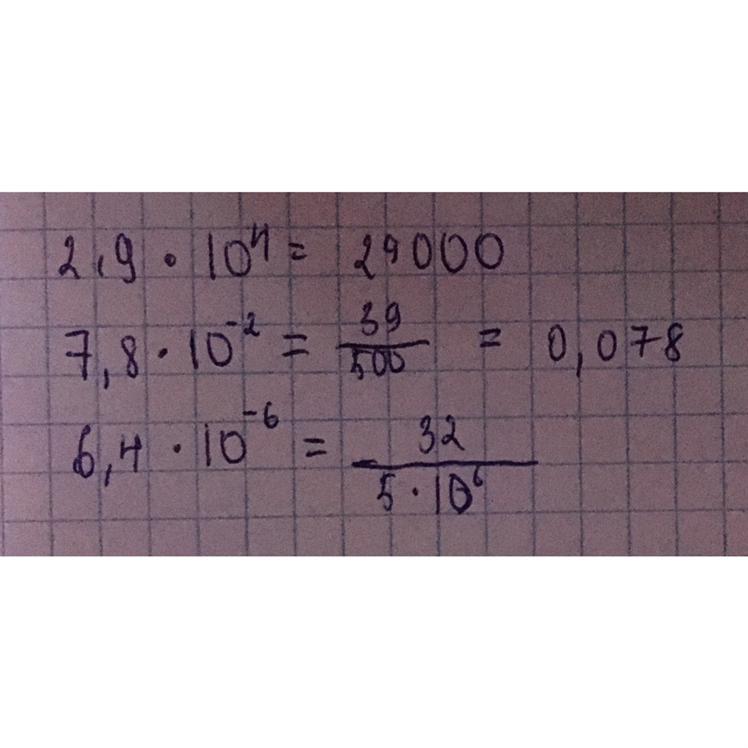 2,9 · 10⁴ = 29000
7,8 · 10⁻² = 39/500 = 0,078
6,4 · 10⁻⁶ = 32/5 · 10⁶